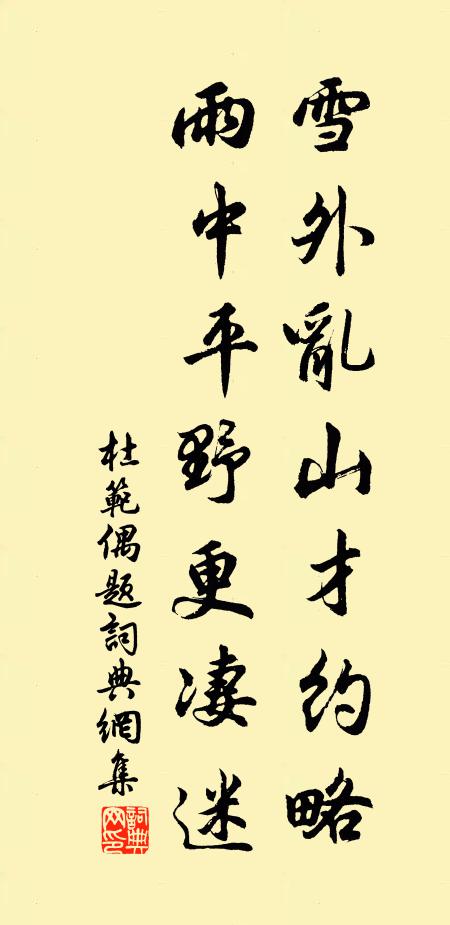 雪外亂山才約略
雨中平野更淒迷
杜範偶題詞典網集
詞典網印